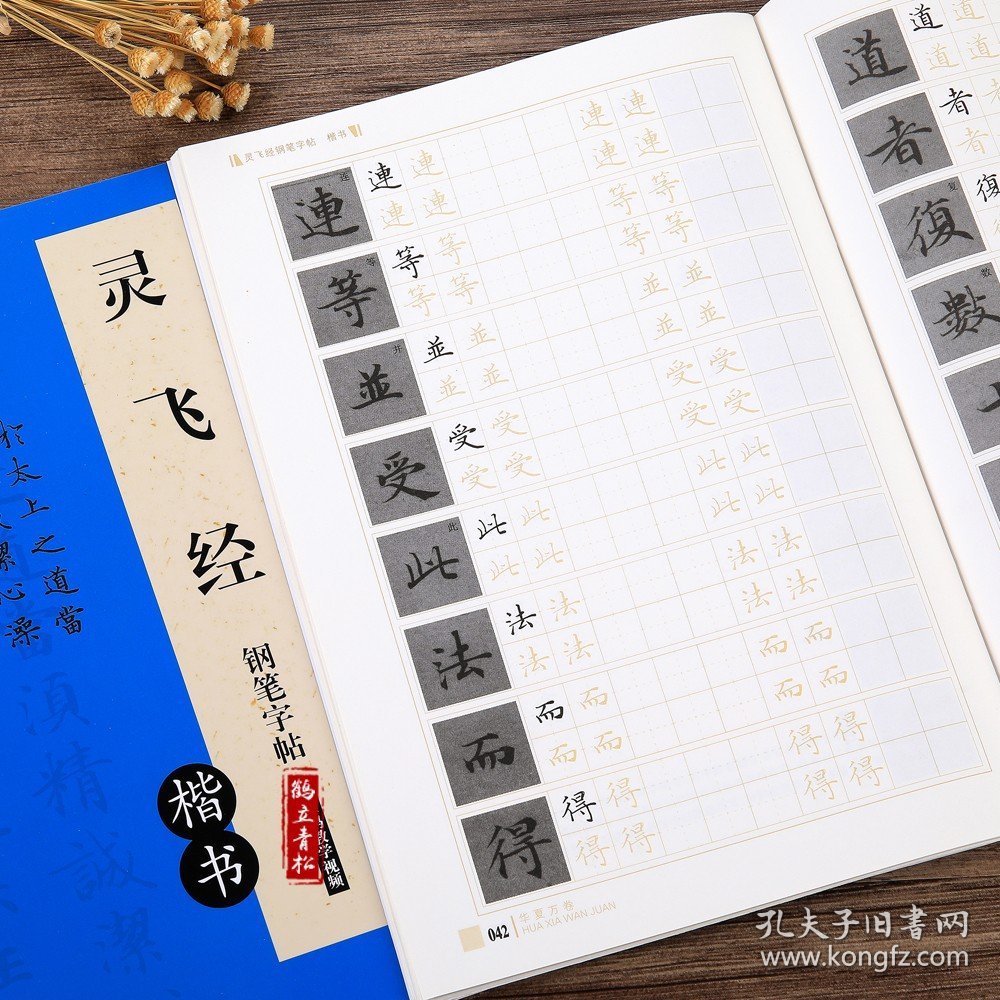 灵飞经
钢笔字帖
楷书
鹤立青松
教学视频
於太上之道當
心澡
須精誠潔
灵飞经钢笔字帖 楷书
连 連 連 連 連 連 連 連
連 連 連 連
等 等 等 等 等 等
等 等 等 等
并 並 並 並 並 並
並 並 並 並
受 受 受 受 受
受 受 受 受
此 此 此 此 此 此
此 此 此 此
法 法 法 法 法
法 法 法 法
而 而 而 而 而
而 而 而 而
得 得 得 得 得
得 得 得 得
042 华夏万卷
HUA XIA WAN JUAN
道 道 道
道 道
者 者 者
者
复 復 復
数 數
孔夫子旧书网
www.kongfz.com